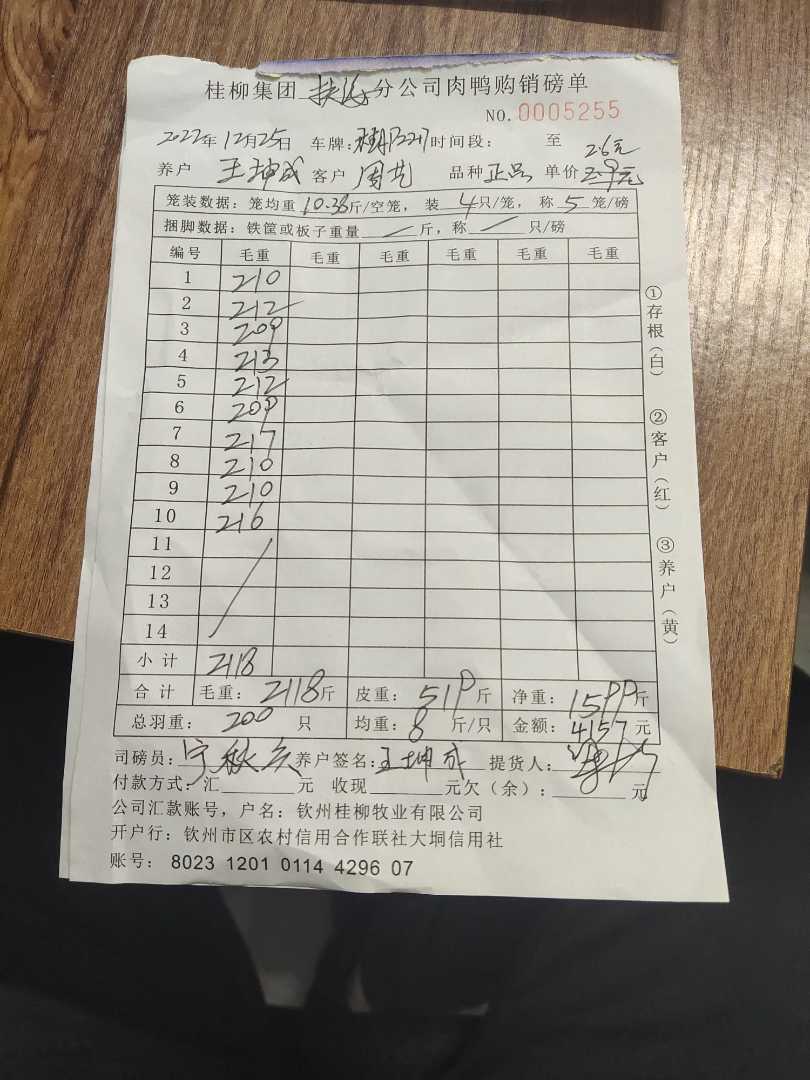 桂柳集团 扶隆 分公司肉鸭购销磅单
NO. 0005255
2022年12月25日 车牌: 时间段: 至
2.6元
养户 王坤成 客户 周艺 品种 正品 单价 2.9元
笼装数据: 笼均重 10.38 斤/空笼, 装 4 只/笼, 称 5 笼/磅
捆脚数据: 铁筐或板子重量 / 斤, 称 / 只/磅
编号 毛重 毛重 毛重 毛重 毛重 毛重
1 210
2 212
3 209
4 213
5 212
6 209
7 217
8 210
9 210
10 216
11
12
13
14
小计 2118
合计 毛重: 2118斤 皮重: 519斤 净重: 1599斤
总羽重: 200 只 均重: 8 斤/只 金额: 4157元
司磅员: 养户签名: 王坤成 提货人:
付款方式: 汇 元 收现 元欠(余): 元
公司汇款账号, 户名: 钦州桂柳牧业有限公司
开户行: 钦州市区农村信用合作联社大垌信用社
账号: 8023 1201 0114 4296 07
①存根(白)
②客户(红)
③养户(黄)